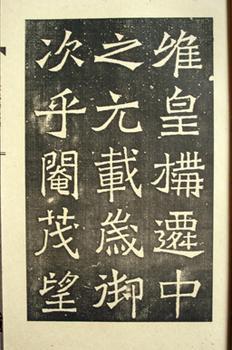 惟皇構遷中
之元載歲御
次乎閹茂望